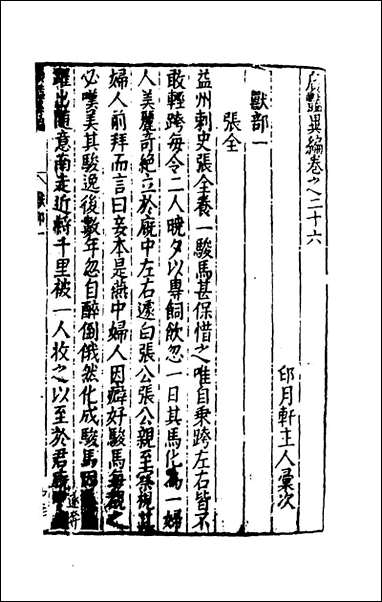 廣豔異編卷之二十六
印月軒主人彙次
獸部一
張全
益州刺史張全養一駿馬甚保惜之唯自乘跨左右皆不
敢輕跨每令二人曉夕以專飼飲忽一日其馬化為一婦
人美麗奇絶立於廐中左右遽白張公張公親至察視其
婦人前拜而言曰妾本是燕中婦人因癖好駿馬每覩之
必嘆美其駿逸後數年忽自醉倒俄然化成駿馬
躍出隨意南走近將千里被一人收之以至於君廐中
獸部一